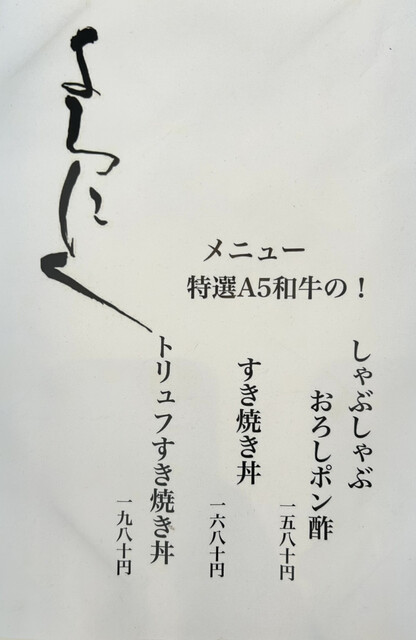 よろにく
メニュー
特選A5和牛の！
しゃぶしゃぶ
おろしポン酢
一五八十円
すき焼き丼
一六八十円
トリュフすき焼き丼
一九八十円